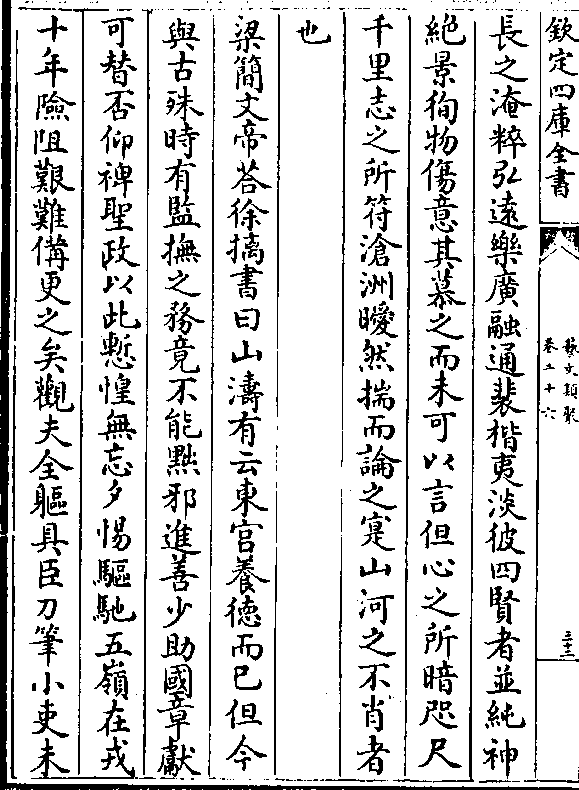 欽定四庫全書
藝文類聚
卷二十六
三十三
長之淹粹弘遠樂廣融通裴楷夷淡彼四賢者並純神
絕景徇物傷意其慕之而未可以言但心之所暗咫尺
千里志之所符滄洲曖然揣而論之寔山河之不肖者
也
梁簡文帝荅徐摛書曰山濤有云東宫養徳而已但今
與古殊時有監撫之務竟不能黜邪進善少助國章獻
可替否仰裨聖政以此慙惶無忘夕惕驅馳五嶺在戎
十年險阻艱難備更之矣觀夫全軀具臣刀筆小吏未